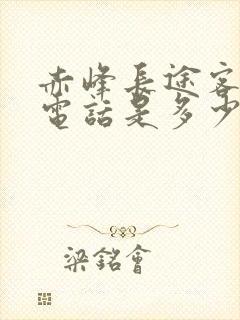 赤峰長途客
電話是多少
梁銘會